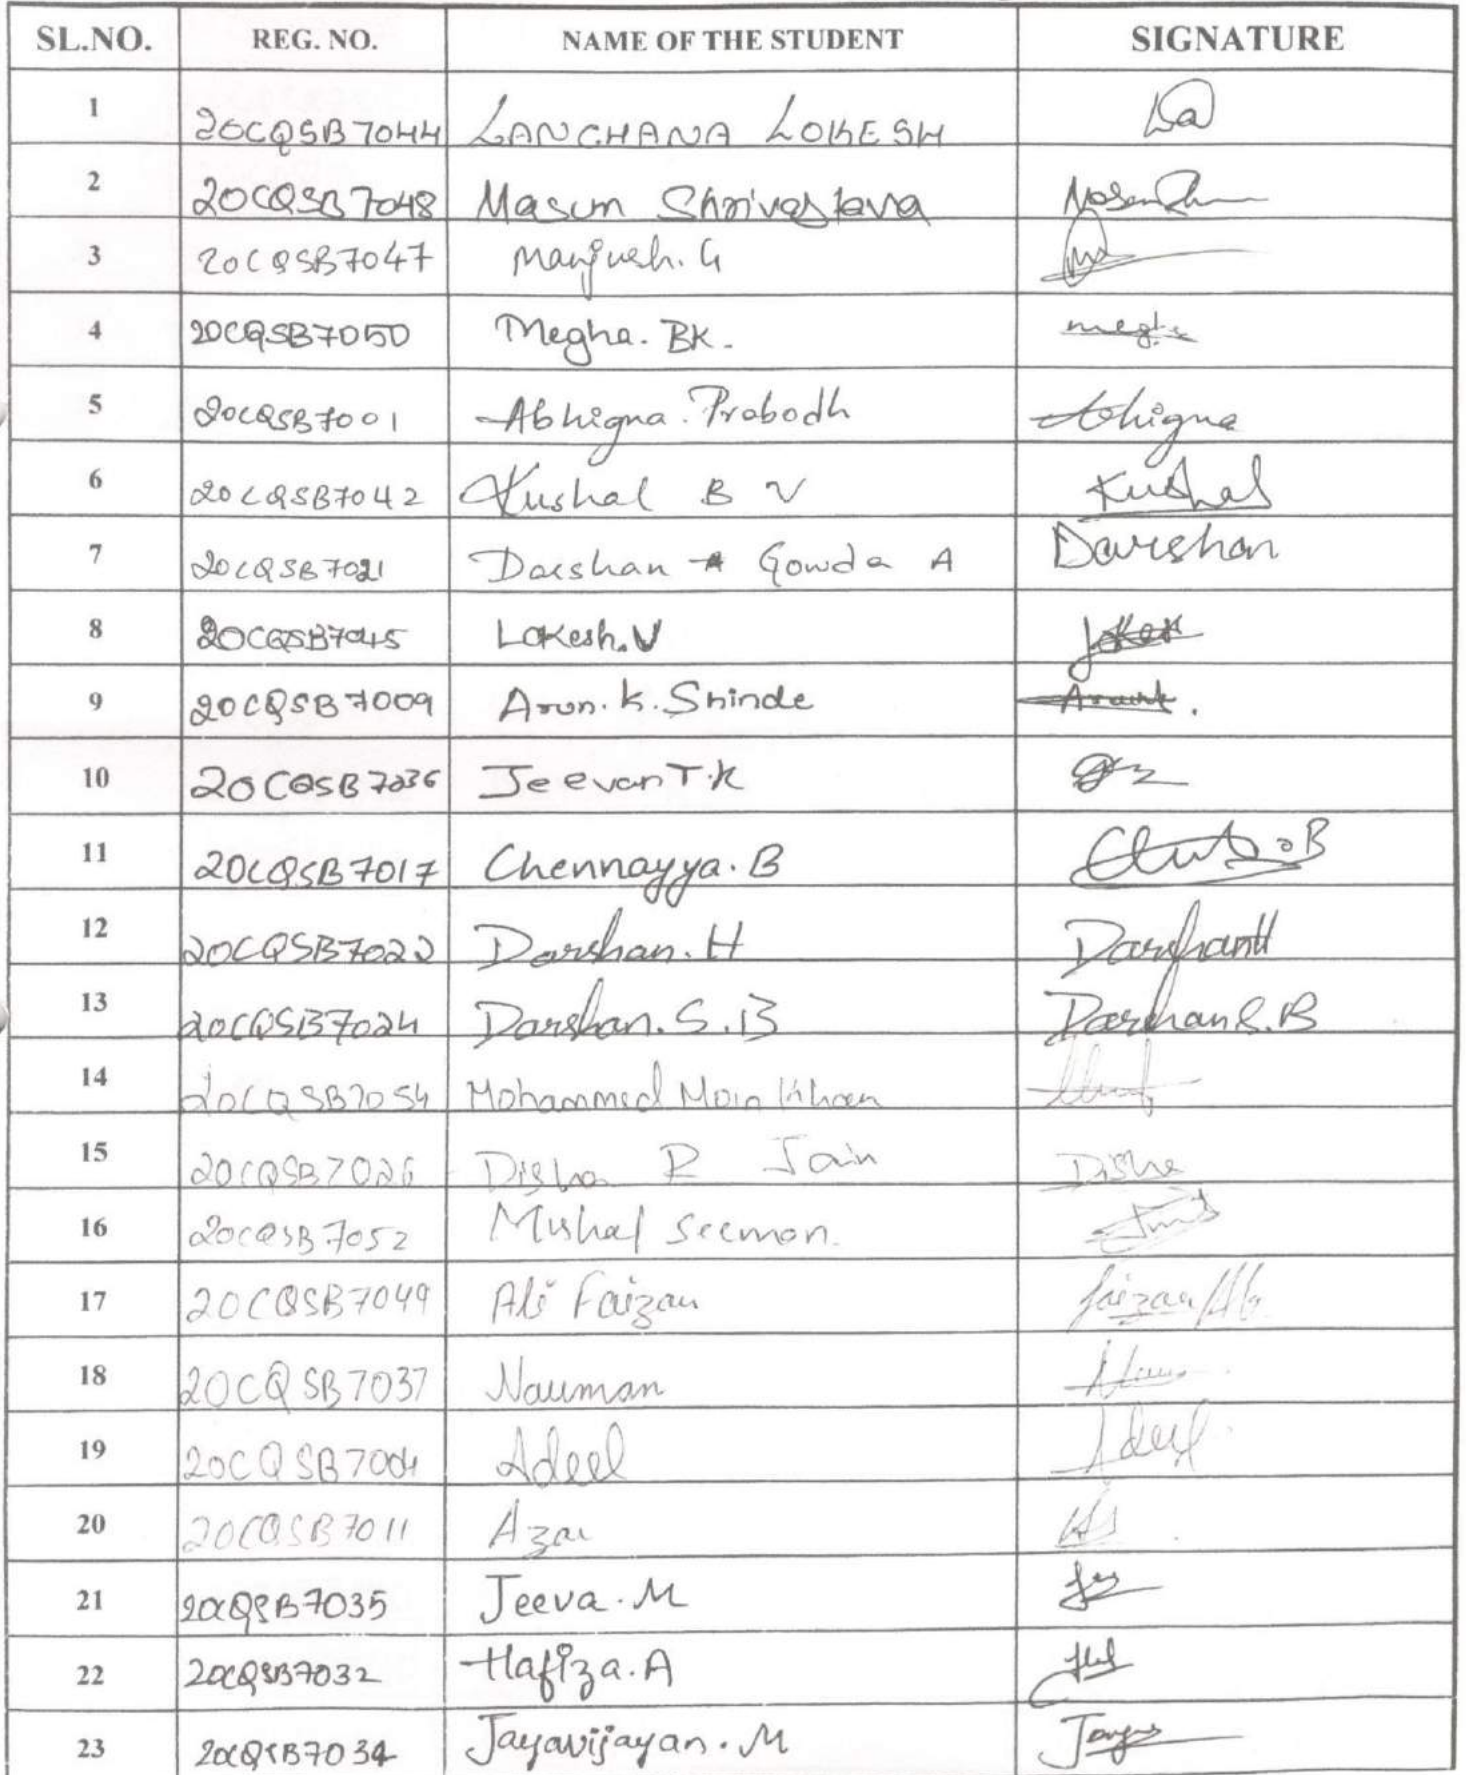 SL.NO. REG. NO. NAME OF THE STUDENT SIGNATURE
1 20CQSB7044 LANCHANA LOKESH
2 20CQSB7048 Masum Shrivastava
3 20CQSB7047 Manjuesh. G
4 20CQSB7050 Megha. BK. megha
5 20CQSB7001 Abhigna. Prabodh Abhigna
6 20CQSB7042 Kushal B V Kushal
7 20CQSB7021 Darshan Gowda A Darshan
8 20CQSB7045 Lokesh.V
9 20CQSB7009 Arun. K. Shinde
10 20CQSB7036 Jeevan T.K
11 20CQSB7017 Chennayya. B
12 20CQSB7022 Darshan. H Darshan H
13 20CQSB7024 Darshan. S. B Darshan S. B
14 20CQSB7054 Mohammed Moin Khan
15 20CQSB7026 Disha R Jain Disha
16 20CQSB7052 Mishal Seemon.
17 20CQSB7049 Ali Faizan faizan Ali
18 20CQSB7037 Nauman
19 20CQSB7004 Adeel Adeel
20 20CQSB7011 Azar
21 20CQSB7035 Jeeva. M
22 20CQSB7032 Hafiza. A
23 20CQSB7034 Jayavijayan. M